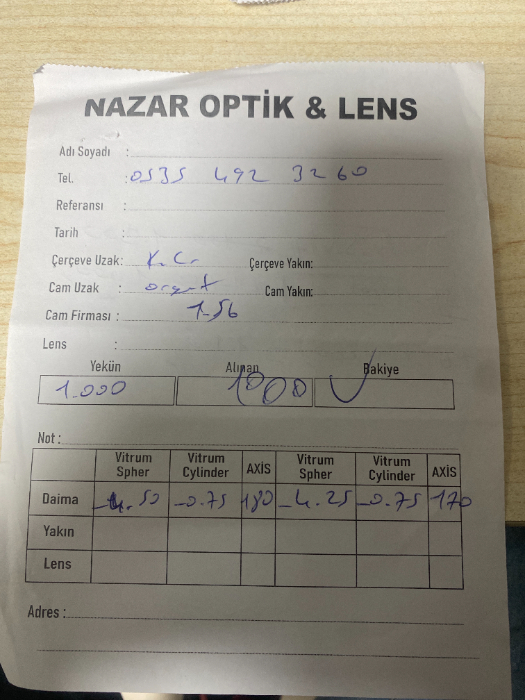 NAZAR OPTİK & LENS
Adı Soyadı :
Tel. : 0535 492 3260
Referansı :
Tarih :
Çerçeve Uzak: K.C. Çerçeve Yakın:
Cam Uzak : Cam Yakın:
Cam Firması : 1.56
Lens :
Yekün Alınan Bakiye
1.000 1000
Not :
Vitrum Spher Vitrum Cylinder AXİS Vitrum Spher Vitrum Cylinder AXİS
Daima -4.50 -0.75 180 -4.25 -0.75 170
Yakın
Lens
Adres :